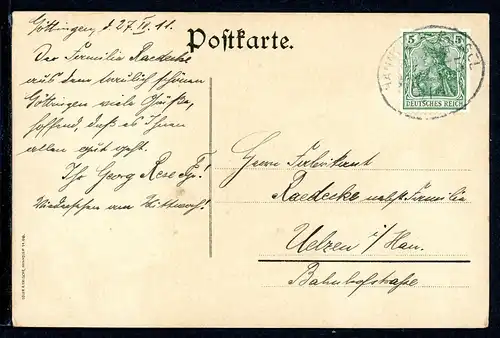 Göttingen, d. 27. IV. 11.
Postkarte.
Der Familie Raedecke
aus dem herrlich schönen
Göttingen viele Grüße,
hoffend, daß es Ihnen
allen gut geht.
Ihr Georg Rese
Wiedersehen am Mittwoch!
5 5
DEUTSCHES REICH
Herrn Fabrikant
Raedecke nebst Familie
Uelzen i/Han.
Bahnhofstraße